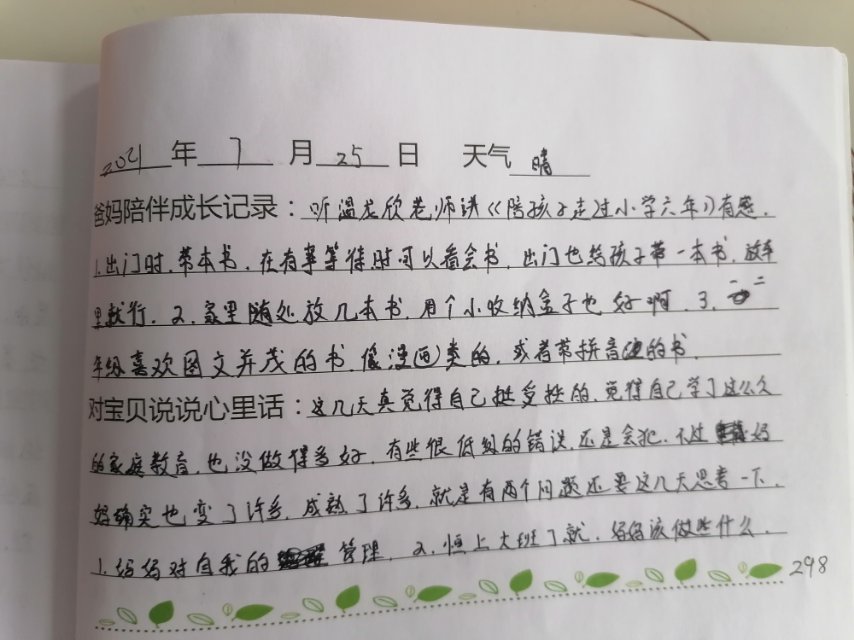 2021 年 7 月 25 日 天气 晴
爸妈陪伴成长记录：听温龙欣老师讲《陪孩子走过小学六年》有感.
1.出门时.带本书.在有事等待时可以看会书.出门也给孩子带一本书.放车
里就行.2.家里随处放几本书.用个小收纳盒子也好啊.3.一二
年级喜欢图文并茂的书.像漫画类的.或者带拼音的书.
对宝贝说说心里话：这几天真觉得自己挺多挫的.觉得自己学了这么久
的家庭教育.也没做得多好.有些很低级的错误.还是会犯.不过妈
妈确实也变了许多.成熟了许多.就是有两个问题还要这几天思考一下.
1.妈妈对自我的管理.2.恒上大班了就.妈妈该做些什么.
298